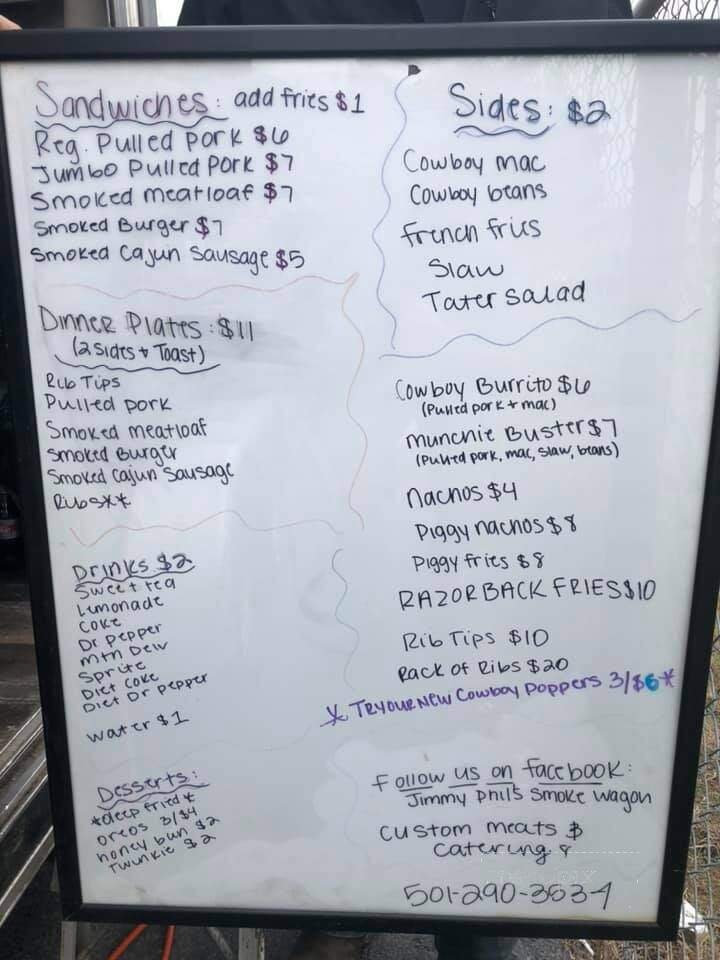 Sandwiches: add fries $1
Reg. Pulled pork $6
Jumbo Pulled Pork $7
Smoked meatloaf $7
Smoked Burger $7
Smoked Cajun Sausage $5
Dinner Plates: $11
(2 sides + Toast)
Rib Tips
Pulled pork
Smoked meatloaf
Smoked Burger
Smoked Cajun Sausage
Ribs**
Drinks $2
Sweet tea
Lemonade
Coke
Dr pepper
mtn Dew
Sprite
Diet Coke
Diet Dr pepper
water $1
Desserts:
*deep fried*
oreos 3/$4
honey bun $2
Twinkie $2
Sides: $2
Cowboy mac
Cowboy beans
french fries
Slaw
Tater Salad
Cowboy Burrito $6
(Pulled pork + mac)
munchie Buster $7
(Pulled pork, mac, slaw, beans)
nachos $4
Piggy nachos $8
Piggy fries $8
RAZORBACK FRIES $10
Rib Tips $10
Rack of Ribs $20
* TRY OUR NEW Cowboy Poppers 3/$6*
Follow us on facebook:
Jimmy Phil's Smoke wagon
custom meats $
catering &
501-290-3634